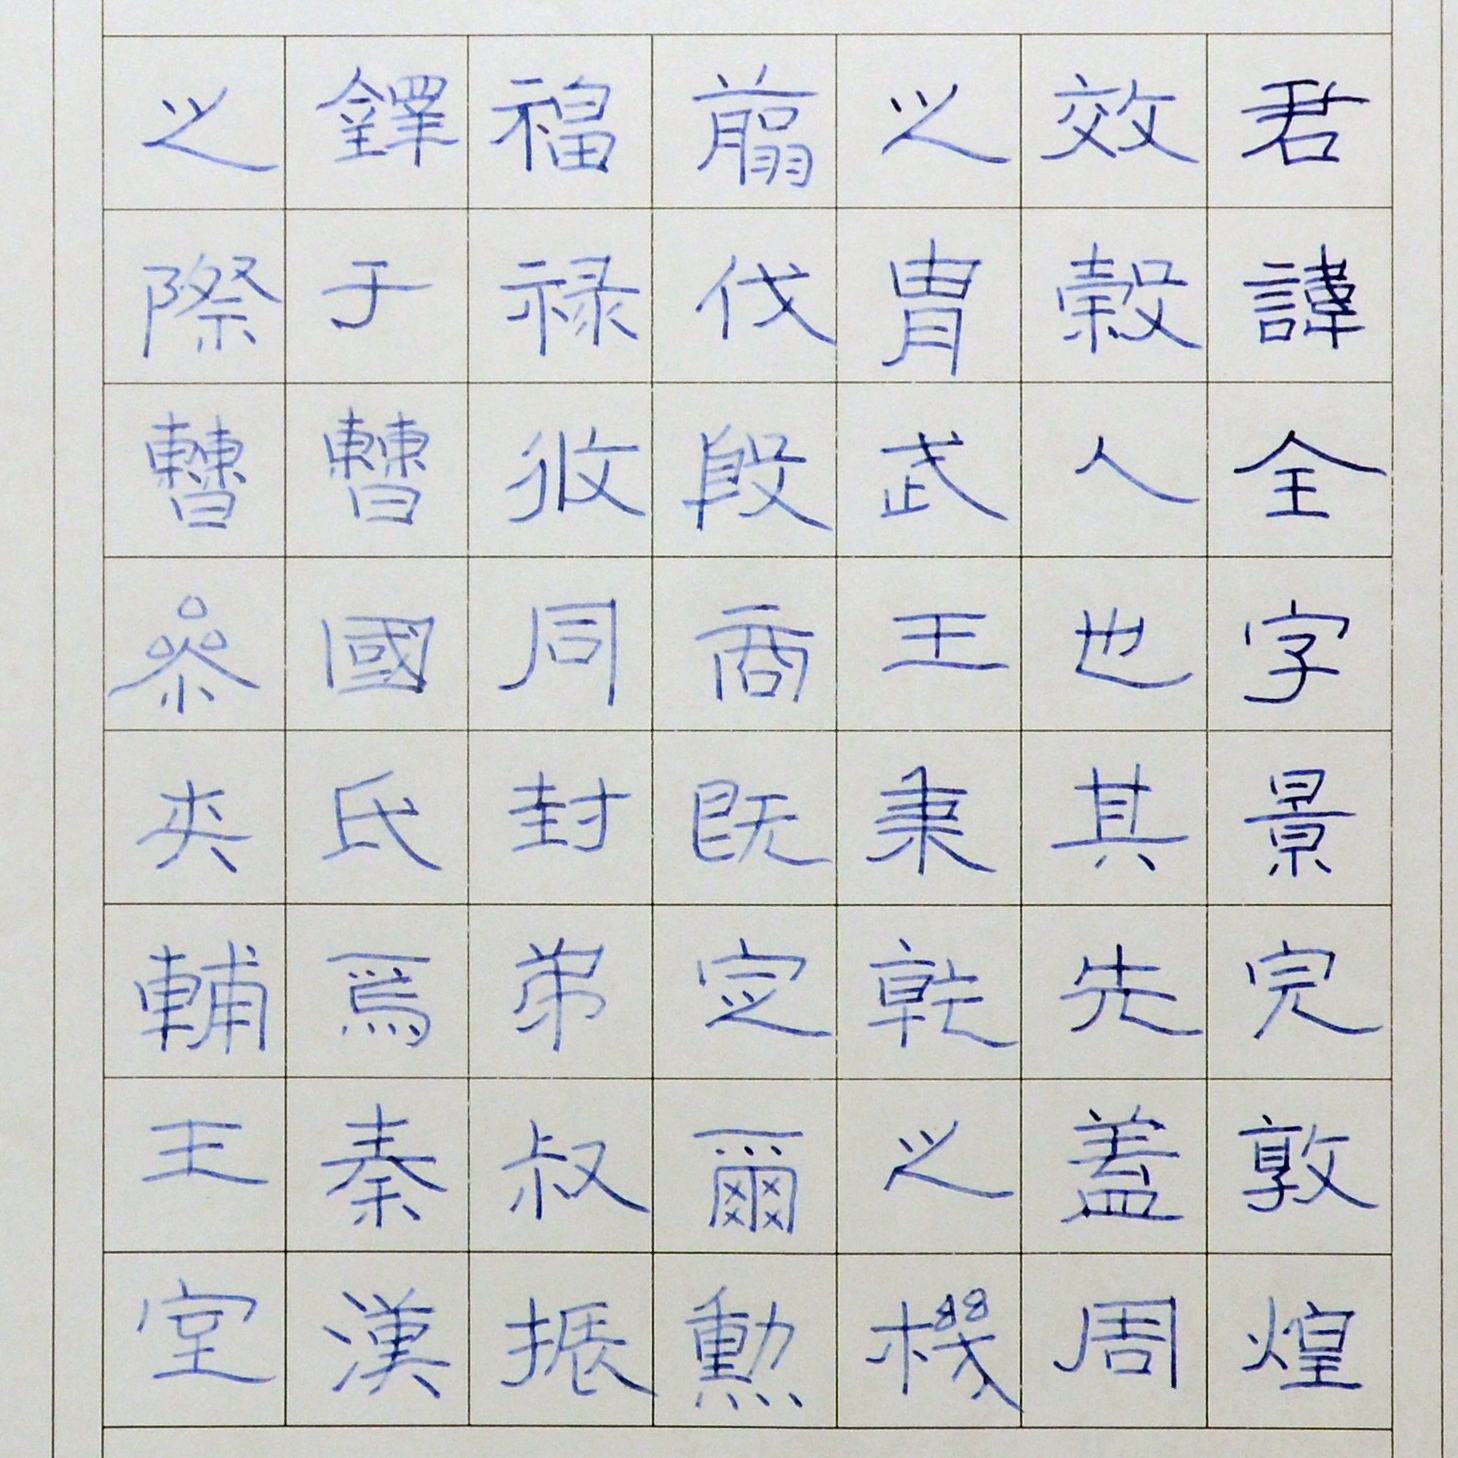 君諱全字景完敦煌
效穀人也其先蓋周
之胄武王秉乾之機
翦伐殷商既定爾勳
福禄攸同封弟叔振
鐸于曹國氏焉秦漢
之際曹參夾輔王室